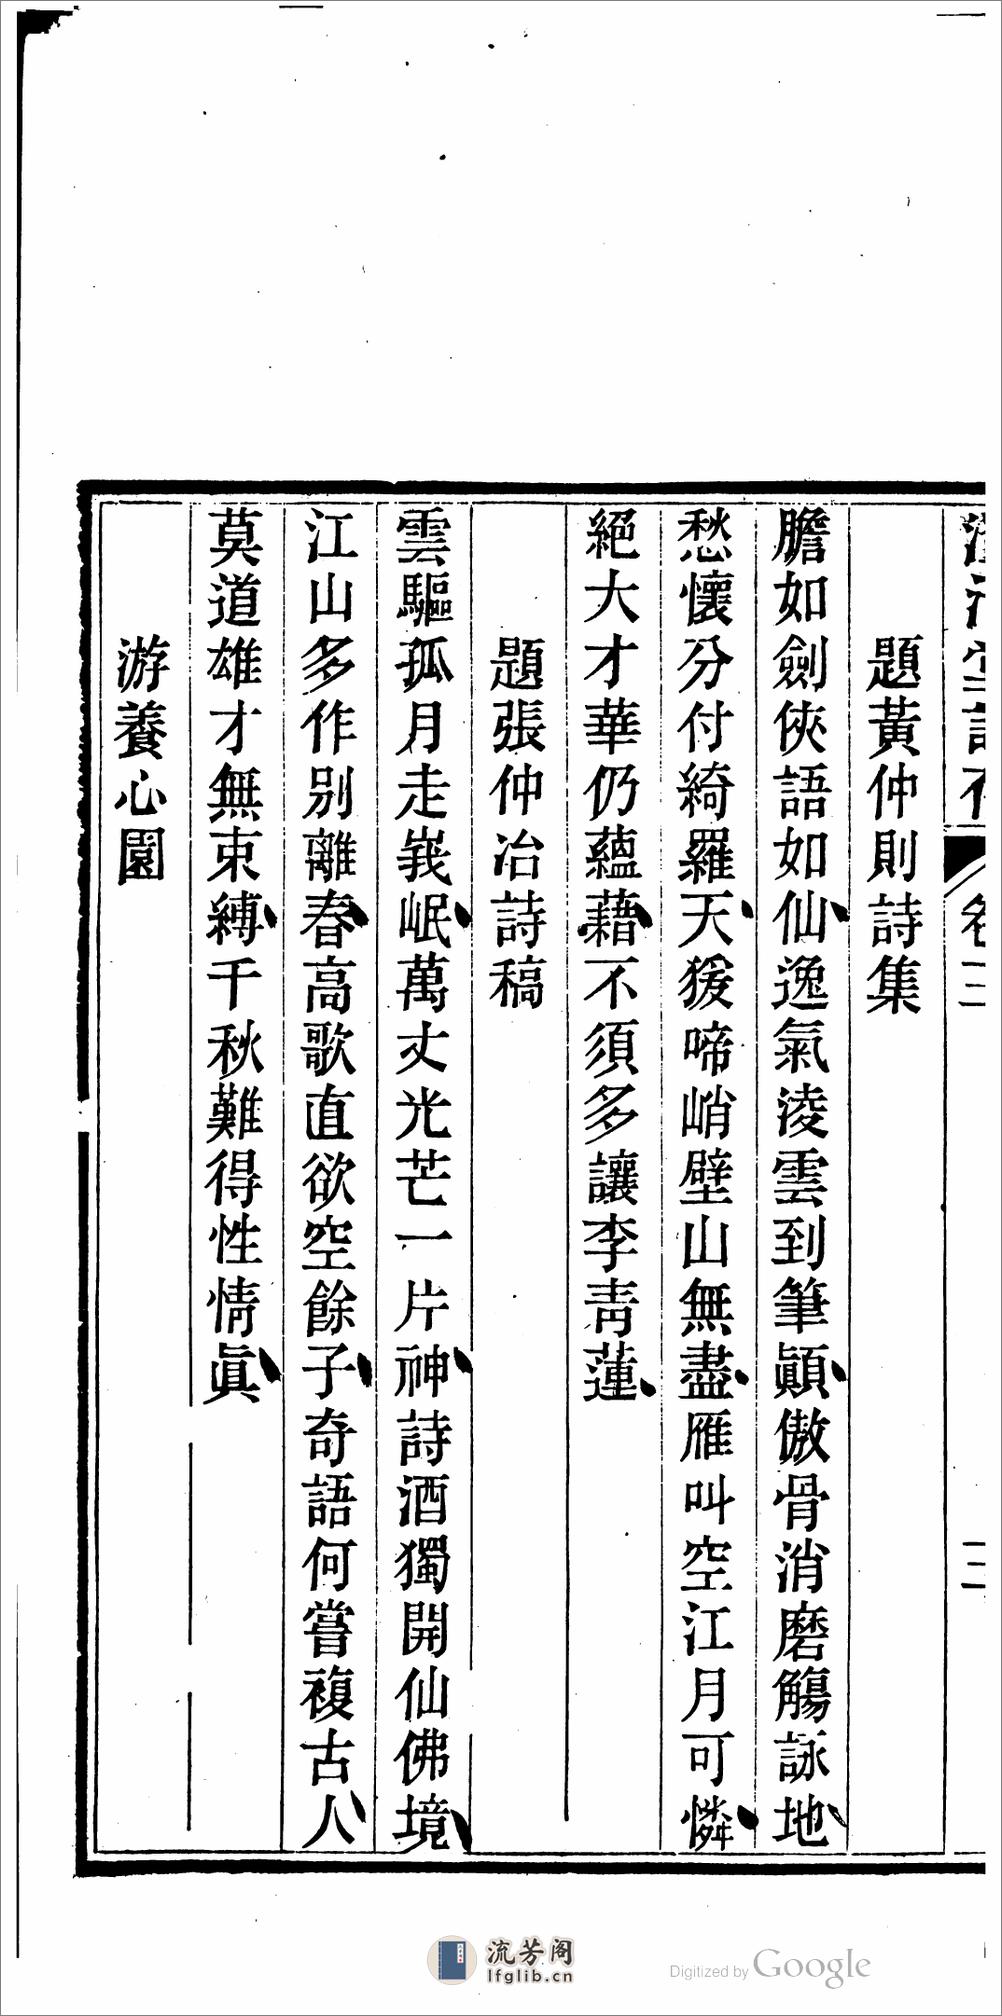 題黃仲則詩集
膽如劍俠語如仙逸氣淩雲到筆顚傲骨消磨觴詠地
愁懷分付綺羅天猨啼峭壁山無盡雁叫空江月可憐
絕大才華仍蘊藉不須多讓李青蓮
題張仲冶詩稿
雲驅孤月走峩岷萬丈光芒一片神詩酒獨開仙佛境
江山多作別離春高歌直欲空餘子奇語何嘗複古人
莫道雄才無束縛千秋難得性情眞
游養心園
流芳阁
lfglib.cn
Digitized by Google